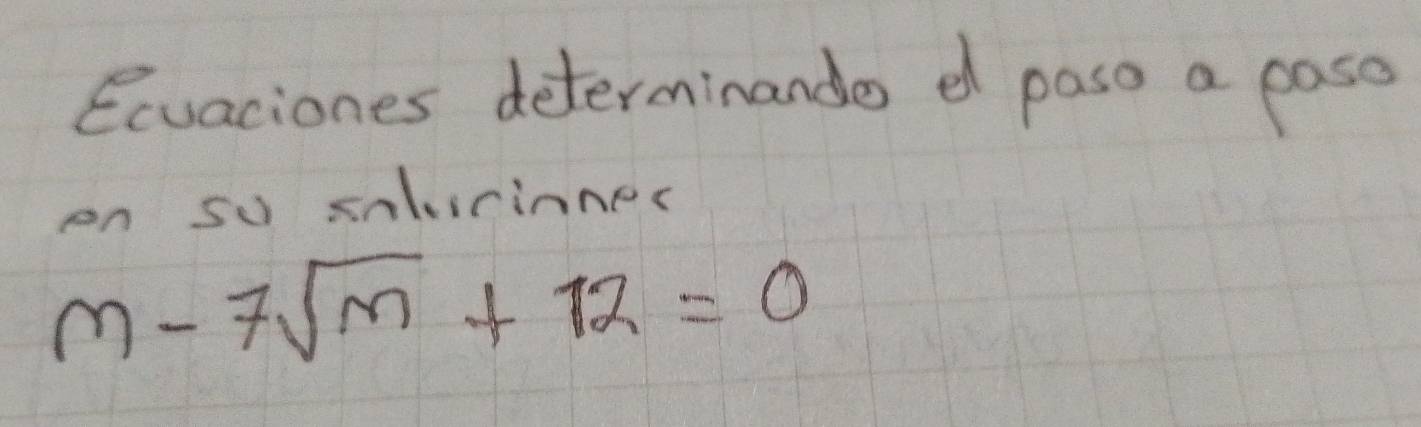 Ecuaciones determinando el paso a paso
en su soluciones
m - 7√m + 12 = 0